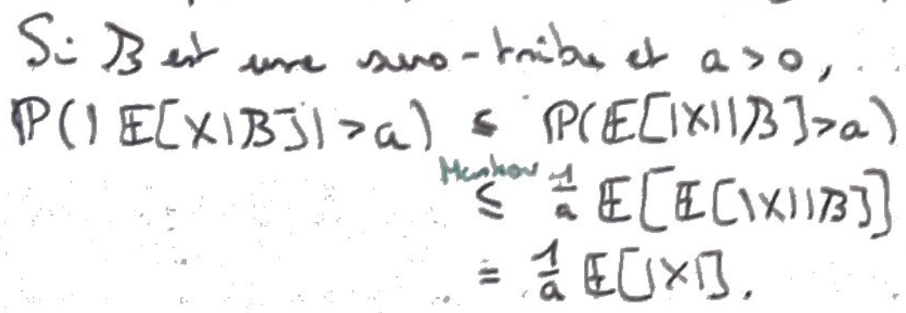 Si B est une sous-tribu et a > 0,
P(|E[X|B]| > a) ≤ P(E[|X||B] > a)
Markov
≤ 1/a E[E[|X||B]]
= 1/a E[|X|].